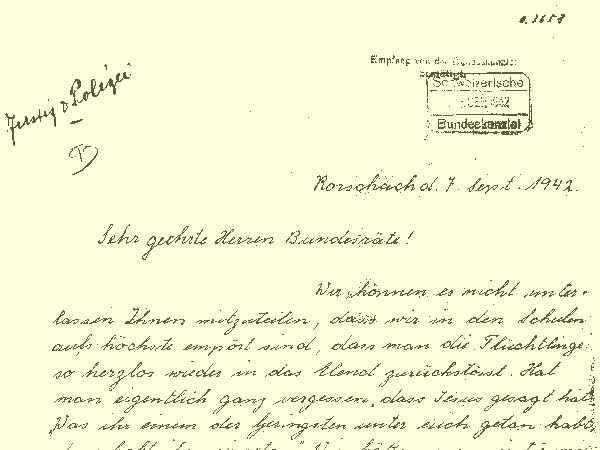 Empfang von der Bundeskanzlei
bestätigt
Schweizerische
Bundeskanzlei
Justiz & Polizei
Rorschach d. 7. Sept. 1942.
Sehr geehrte Herren Bundesräte!
Wir können es nicht unter-
lassen Ihnen mitzuteilen, dass wir in den Schulen
aufs höchste empört sind, dass man die Flüchtlinge
so herzlos wieder in das Elend zurückstösst. Hat
man eigentlich ganz vergessen, dass Jesus gesagt hat
„Was ihr einem der Geringsten unter euch getan habt,